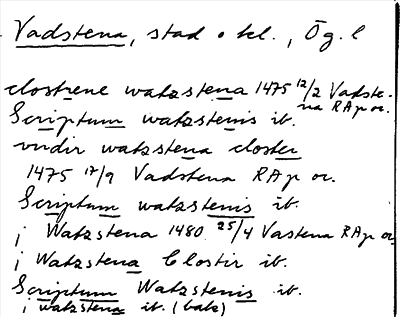 Vadstena, stad o kl., Ög. l
clostrene watzstena 1475 12/2 Vadste-
na RAp or.
Scriptum watzstenis ib.
vndir watzstena closter
1475 17/9 Vadstena RAp or.
Scriptum watzstenis ib.
j Watzstena 1480 25/4 Vastena RAp or.
j Watzstena Clostir ib.
Scriptum Watzstenis ib.
j watzstena ib. (bak)